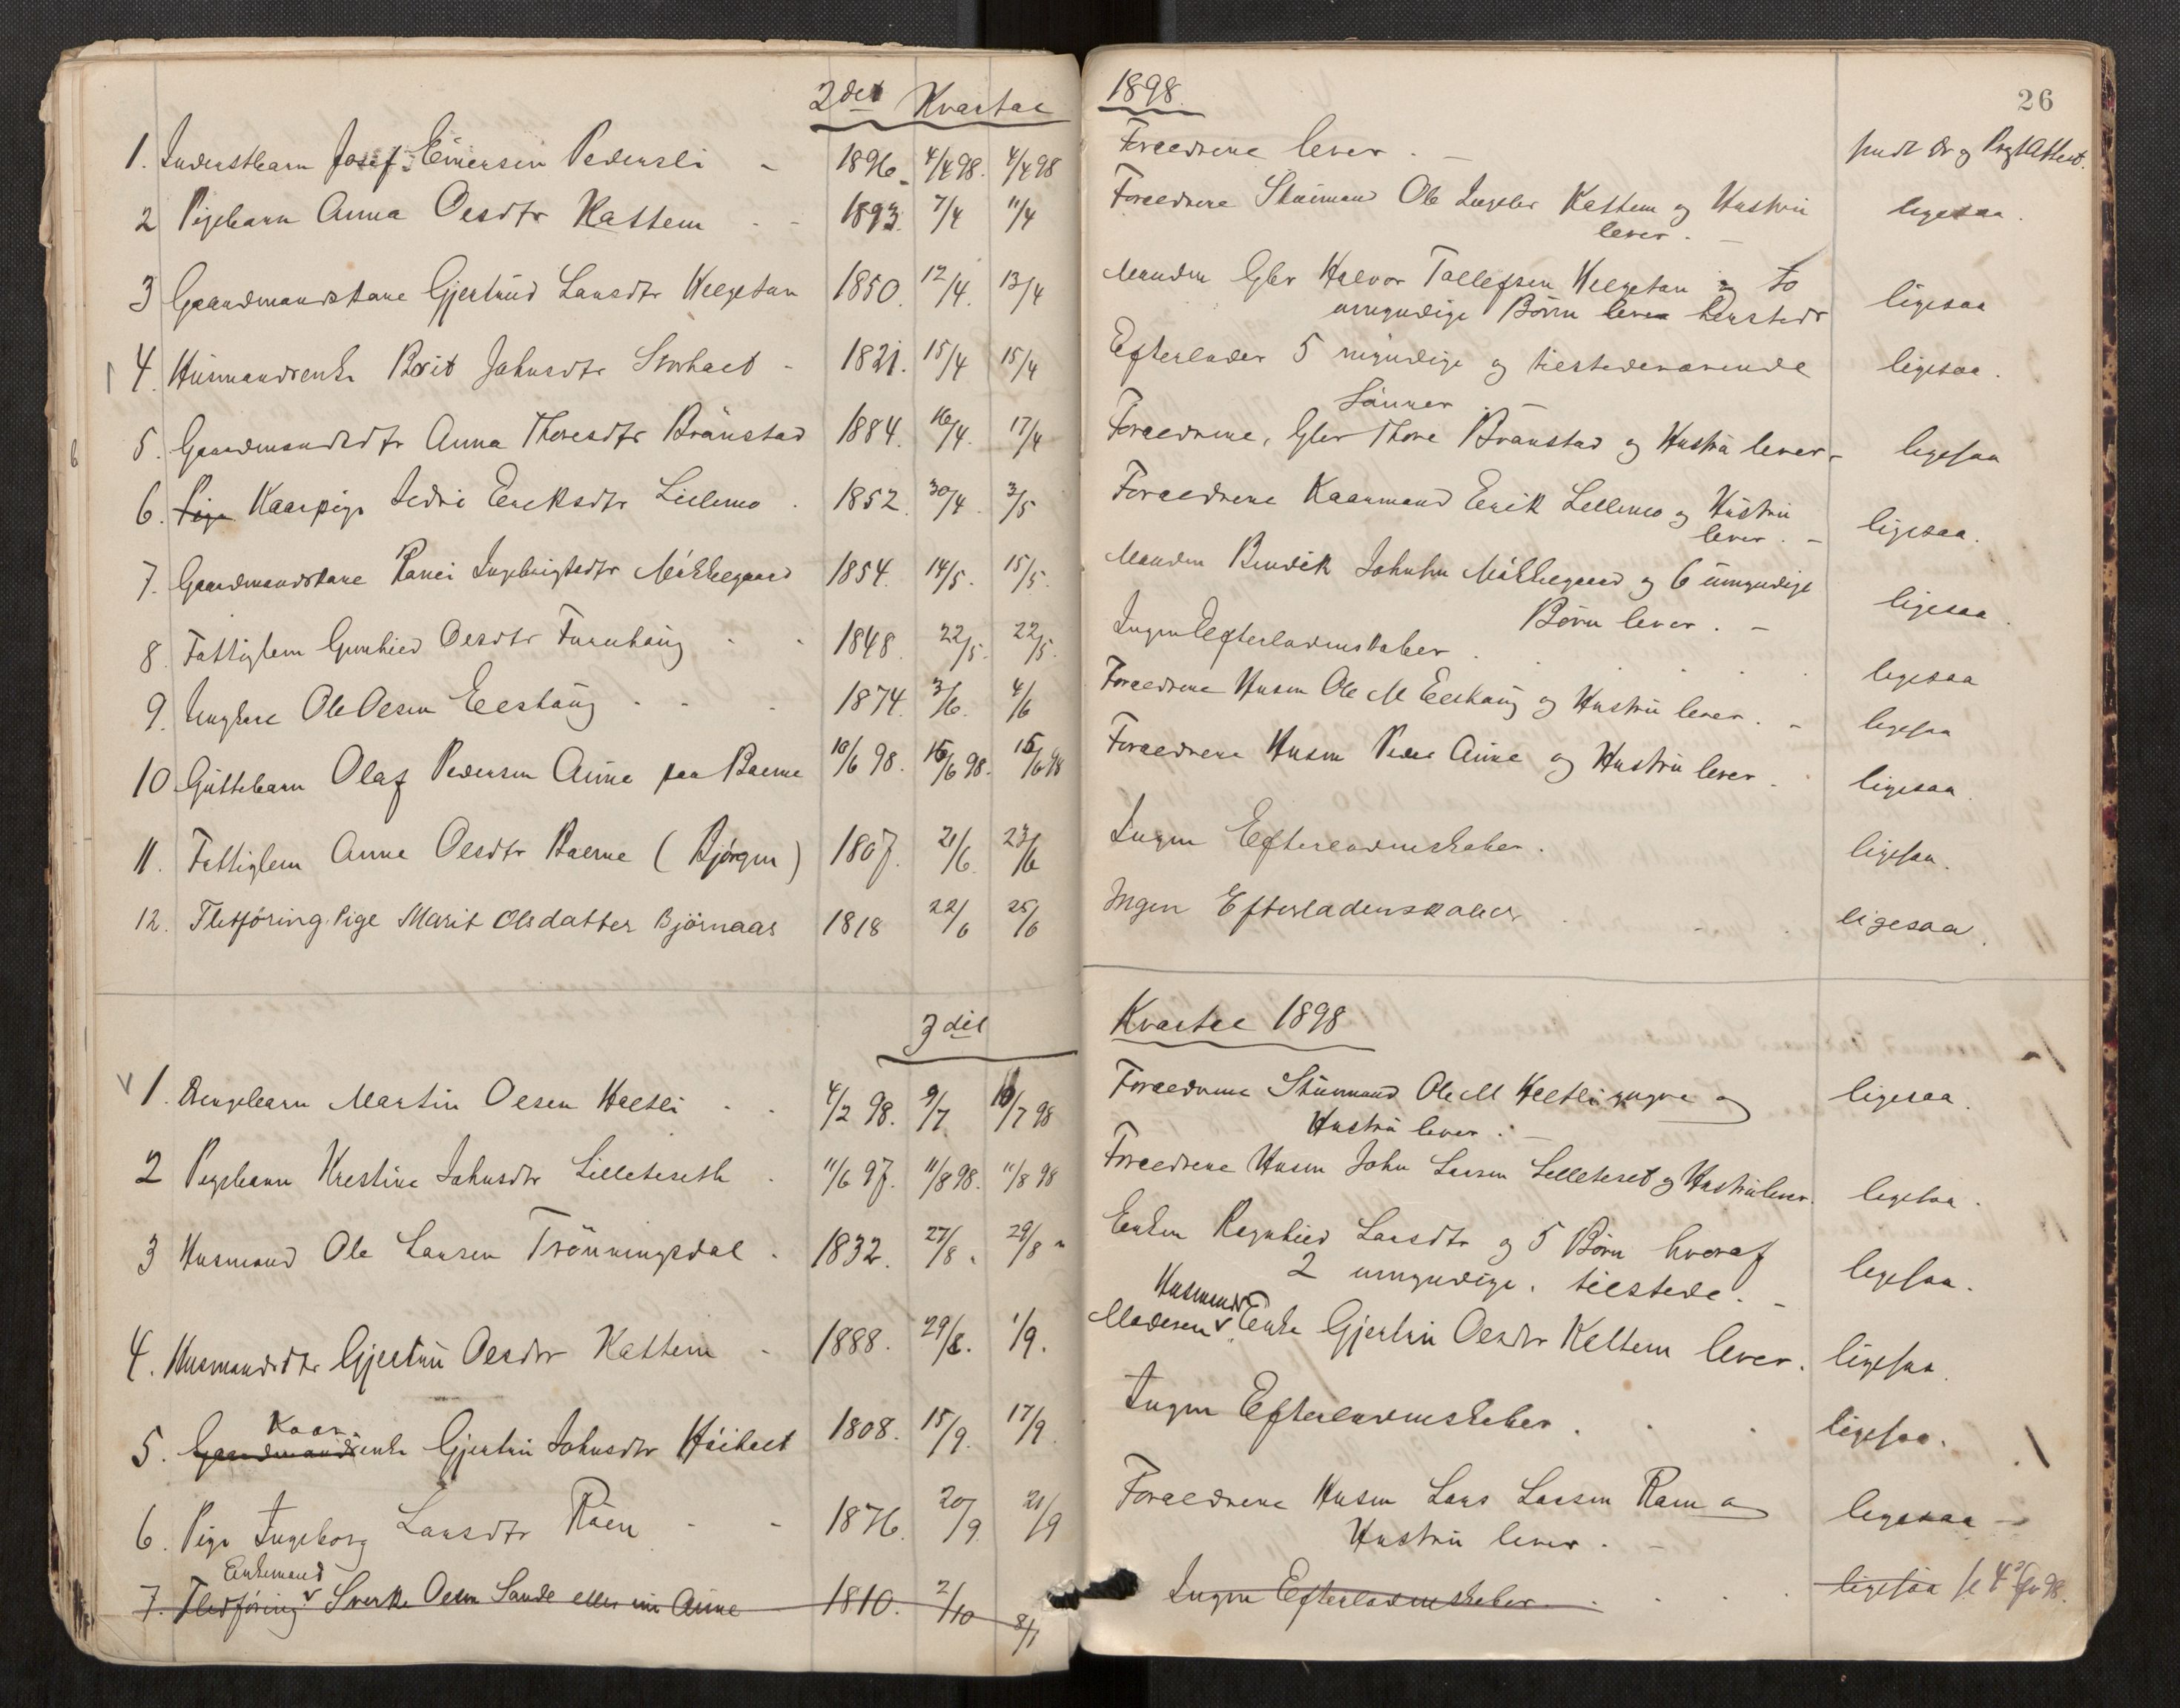 2det Kvartal
1. Inderstbarn Josef Einersen Pedersli - 1896. 4/4 98. 4/4 98
2 Pigebarn Anna Olsdtr Kattem - - 1893. 7/4 11/4
3 Gaardmandskone Gjertrud Larsdtr Helgetun 1850. 12/4. 13/4
4. Husmandsenke Brit Johnsdtr Storholt - 1821. 15/4 15/4
5. Gaardmandsdtr Anna Thoresdtr Brånstad 1884. 16/4. 17/4
6. Pige Kaarpige Sedri Eriksdtr Lillemo . 1852. 30/4. 3/5
7. Gaardmandskone Ranei Ingebrigtsdtr Mökkelgaard 1854. 14/5. 15/5.
8. Fattiglem Gunhild Olsdtr Furuhaug - - 1848. 22/5. 22/5.
9. Ungkarl Ole Olsen Elshaug - - - 1874. 3/6. 4/6
10 Guttebarn Olaf Pedersen Aune paa Balme 10/6 98. 15/6 98. 15/6 98
11. Fattiglem Anne Olsdtr Balme ( Bjørgen ) 1807. 21/6. 23/6
12. Fletföring. Pige Marit Olsdatter Björnaas 1818 22/6 25/6
3die
1. Drengebarn Martin Olsen Holtli - - 4/2 98. 9/7 10/7 98
2 Pigebarn Kristine Johnsdtr Lilleteseth . 11/6 97. 11/8 98. 11/8 98
3 Husmand Ole Larsen Trönningsdal . 1832. 27/8 " 29/8 "
4. Husmandsdtr Gjertrü Olsdtr Kattem - 1888. 29/8. 1/9.
Kaar-
5. Gaardmandsenke Gjertrü Johnsdtr Höiholt 1808. 15/9. 17/9.
6. Pige Ingeborg Larsdtr Råen - - 1876. 20/9. 21/9
Enkemand
7. Fledföring Sverke Olsen Sande eller Aune 1810. 2/10 8/1
1898.
26
Forældrene lever . - Prgt Attest.
Forældrene Skümand Ole Kattem og Hustrü ligesaa.
lever. -
Manden Gbr Halvor Tollefsen Helgetun og to
umyndige Børn lever ligesaa
Efterlader 5 myndige og tilstedeværende ligesaa.
Sönner . -
Forældrene, Gbr Thore Brånstad og Hustrü lever. - ligesaa
Forældrene Kaarmand Erik Lillemo og Hüstrü
lever. - ligesaa.
Manden Bendik Johnsen Mökkelgaard og 6 umyndige
Børn lever. - ligesaa.
Ingen Efterladenskaber . . . . ligesaa
Forældrene Husm Ole M Elshaug og Hustrü lever. - ligesaa
Forældrene Husm Peder Aune og Hustrü lever. ligesaa.
Ingen Efterladenskaber. ligesaa.
Ingen Efterladenskaber . - . ligesaa.
Kvartal 1898
Forældrene Skümand Ole M Holtli yngre og ligesaa.
Hustrü lever. -
Forældrene Husm John Larsen Lilleteset og Hustrü lever. ligesaa.
Enken Ragnhild Larsdtr og 5 Børn hvoraf
2 umyndige. tilstede. - ligesaa.
Husmands
Moderen Enke Gjertrü Olsdtr Kattem lever. ligesaa.
Ingen Efterladenskaber. . . ligesaa.
Forældrene Husm Lars Larsen Råen og ligesaa -
Hustrü lever. -
Ingen Efterladenskaber. . . . ligesaa se 4de Qv 98.